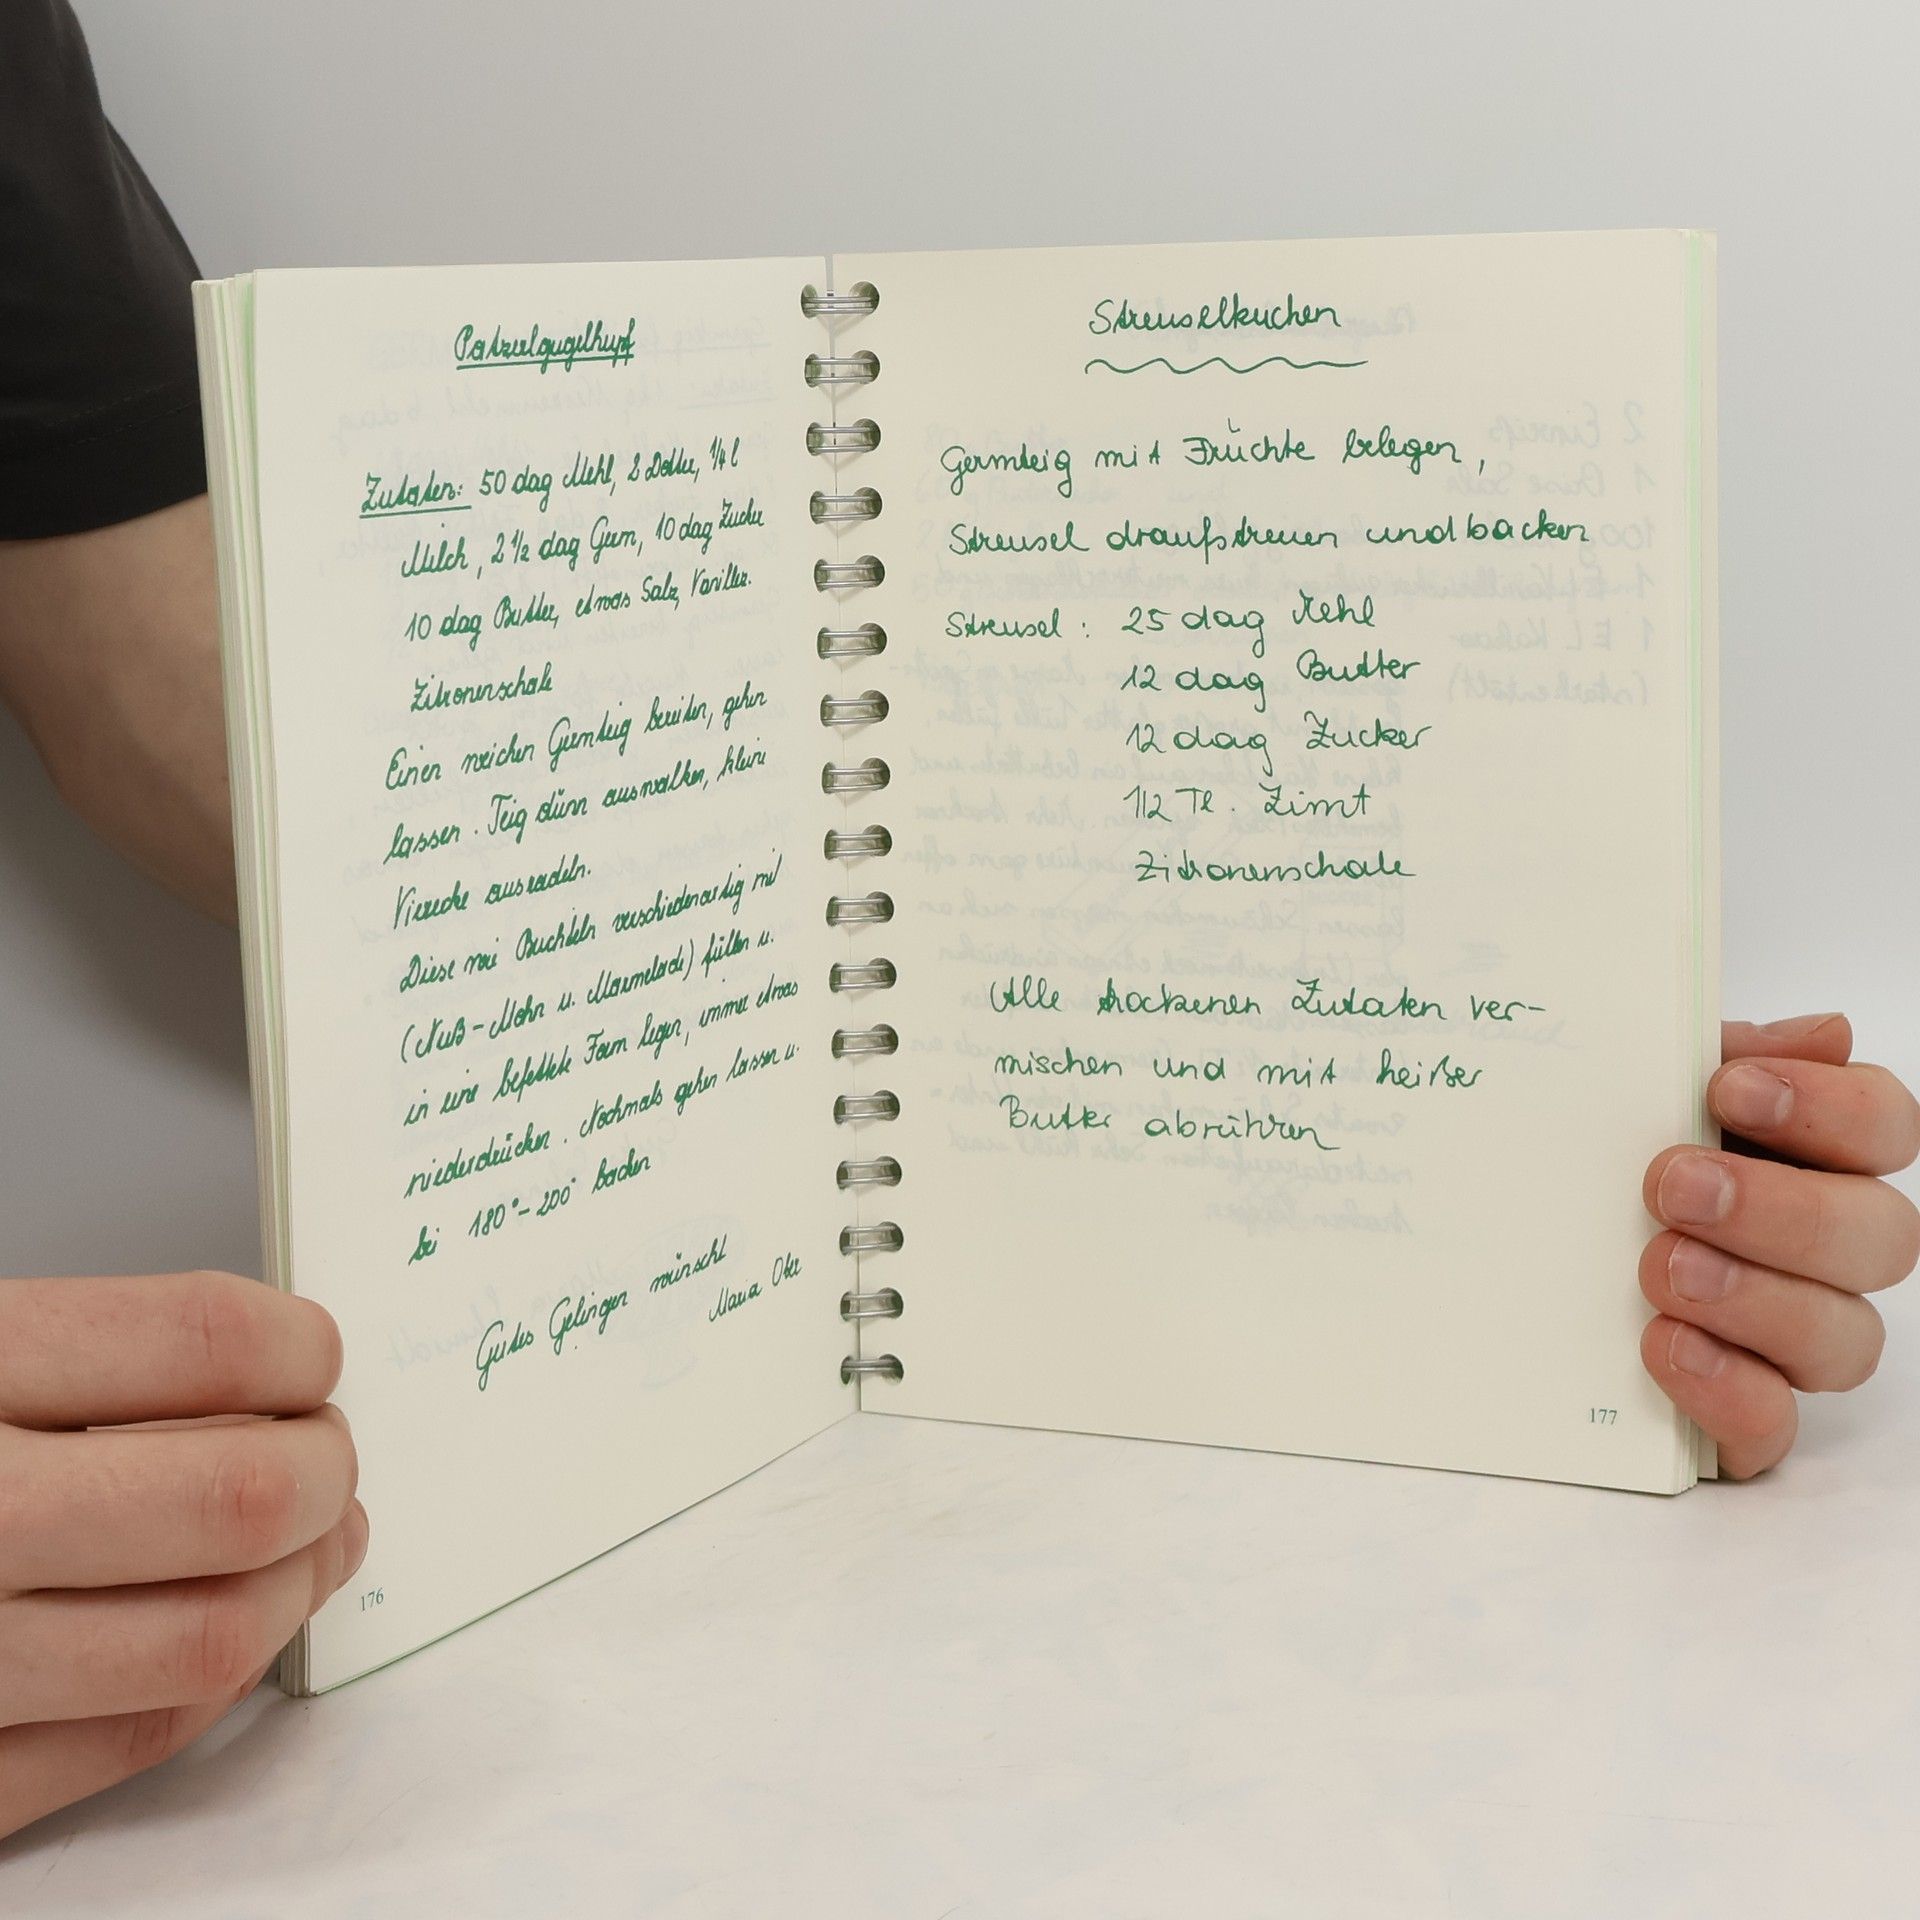 Patzerlgugelhupf
Zutaten: 50 dag Mehl, 2 Dotter, 1/4 l
Milch, 2 1/2 dag Germ, 10 dag Zucker
10 dag Butter, etwas Salz, Vanillez.
Zitronenschale
Einen weichen Germteig bereiten, gehen
lassen. Teig dünn auswalken, kleine
Vierecke ausradeln.
Diese wie Buchteln verschiedenartig mit
(Nuß-Mohn u. Marmelade) füllen u.
in eine befettete Form legen, immer etwas
niederdrücken. Nochmals gehen lassen u.
bei 180°-200° backen
Gutes Gelingen wünscht
Maria Ober
176
Streuselkuchen
Germteig mit Früchte belegen,
Streusel draufstreuen und backen
Streusel: 25 dag Mehl
12 dag Butter
12 dag Zucker
1/2 Tl. Zimt
Zitronenschale
Alle trockenen Zutaten ver-
mischen und mit heißer
Butter abrühren
177